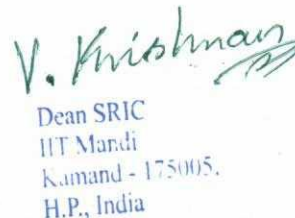 V. Krishnan
Dean SRIC
IIT Mandi
Kamand - 175005.
H.P., India